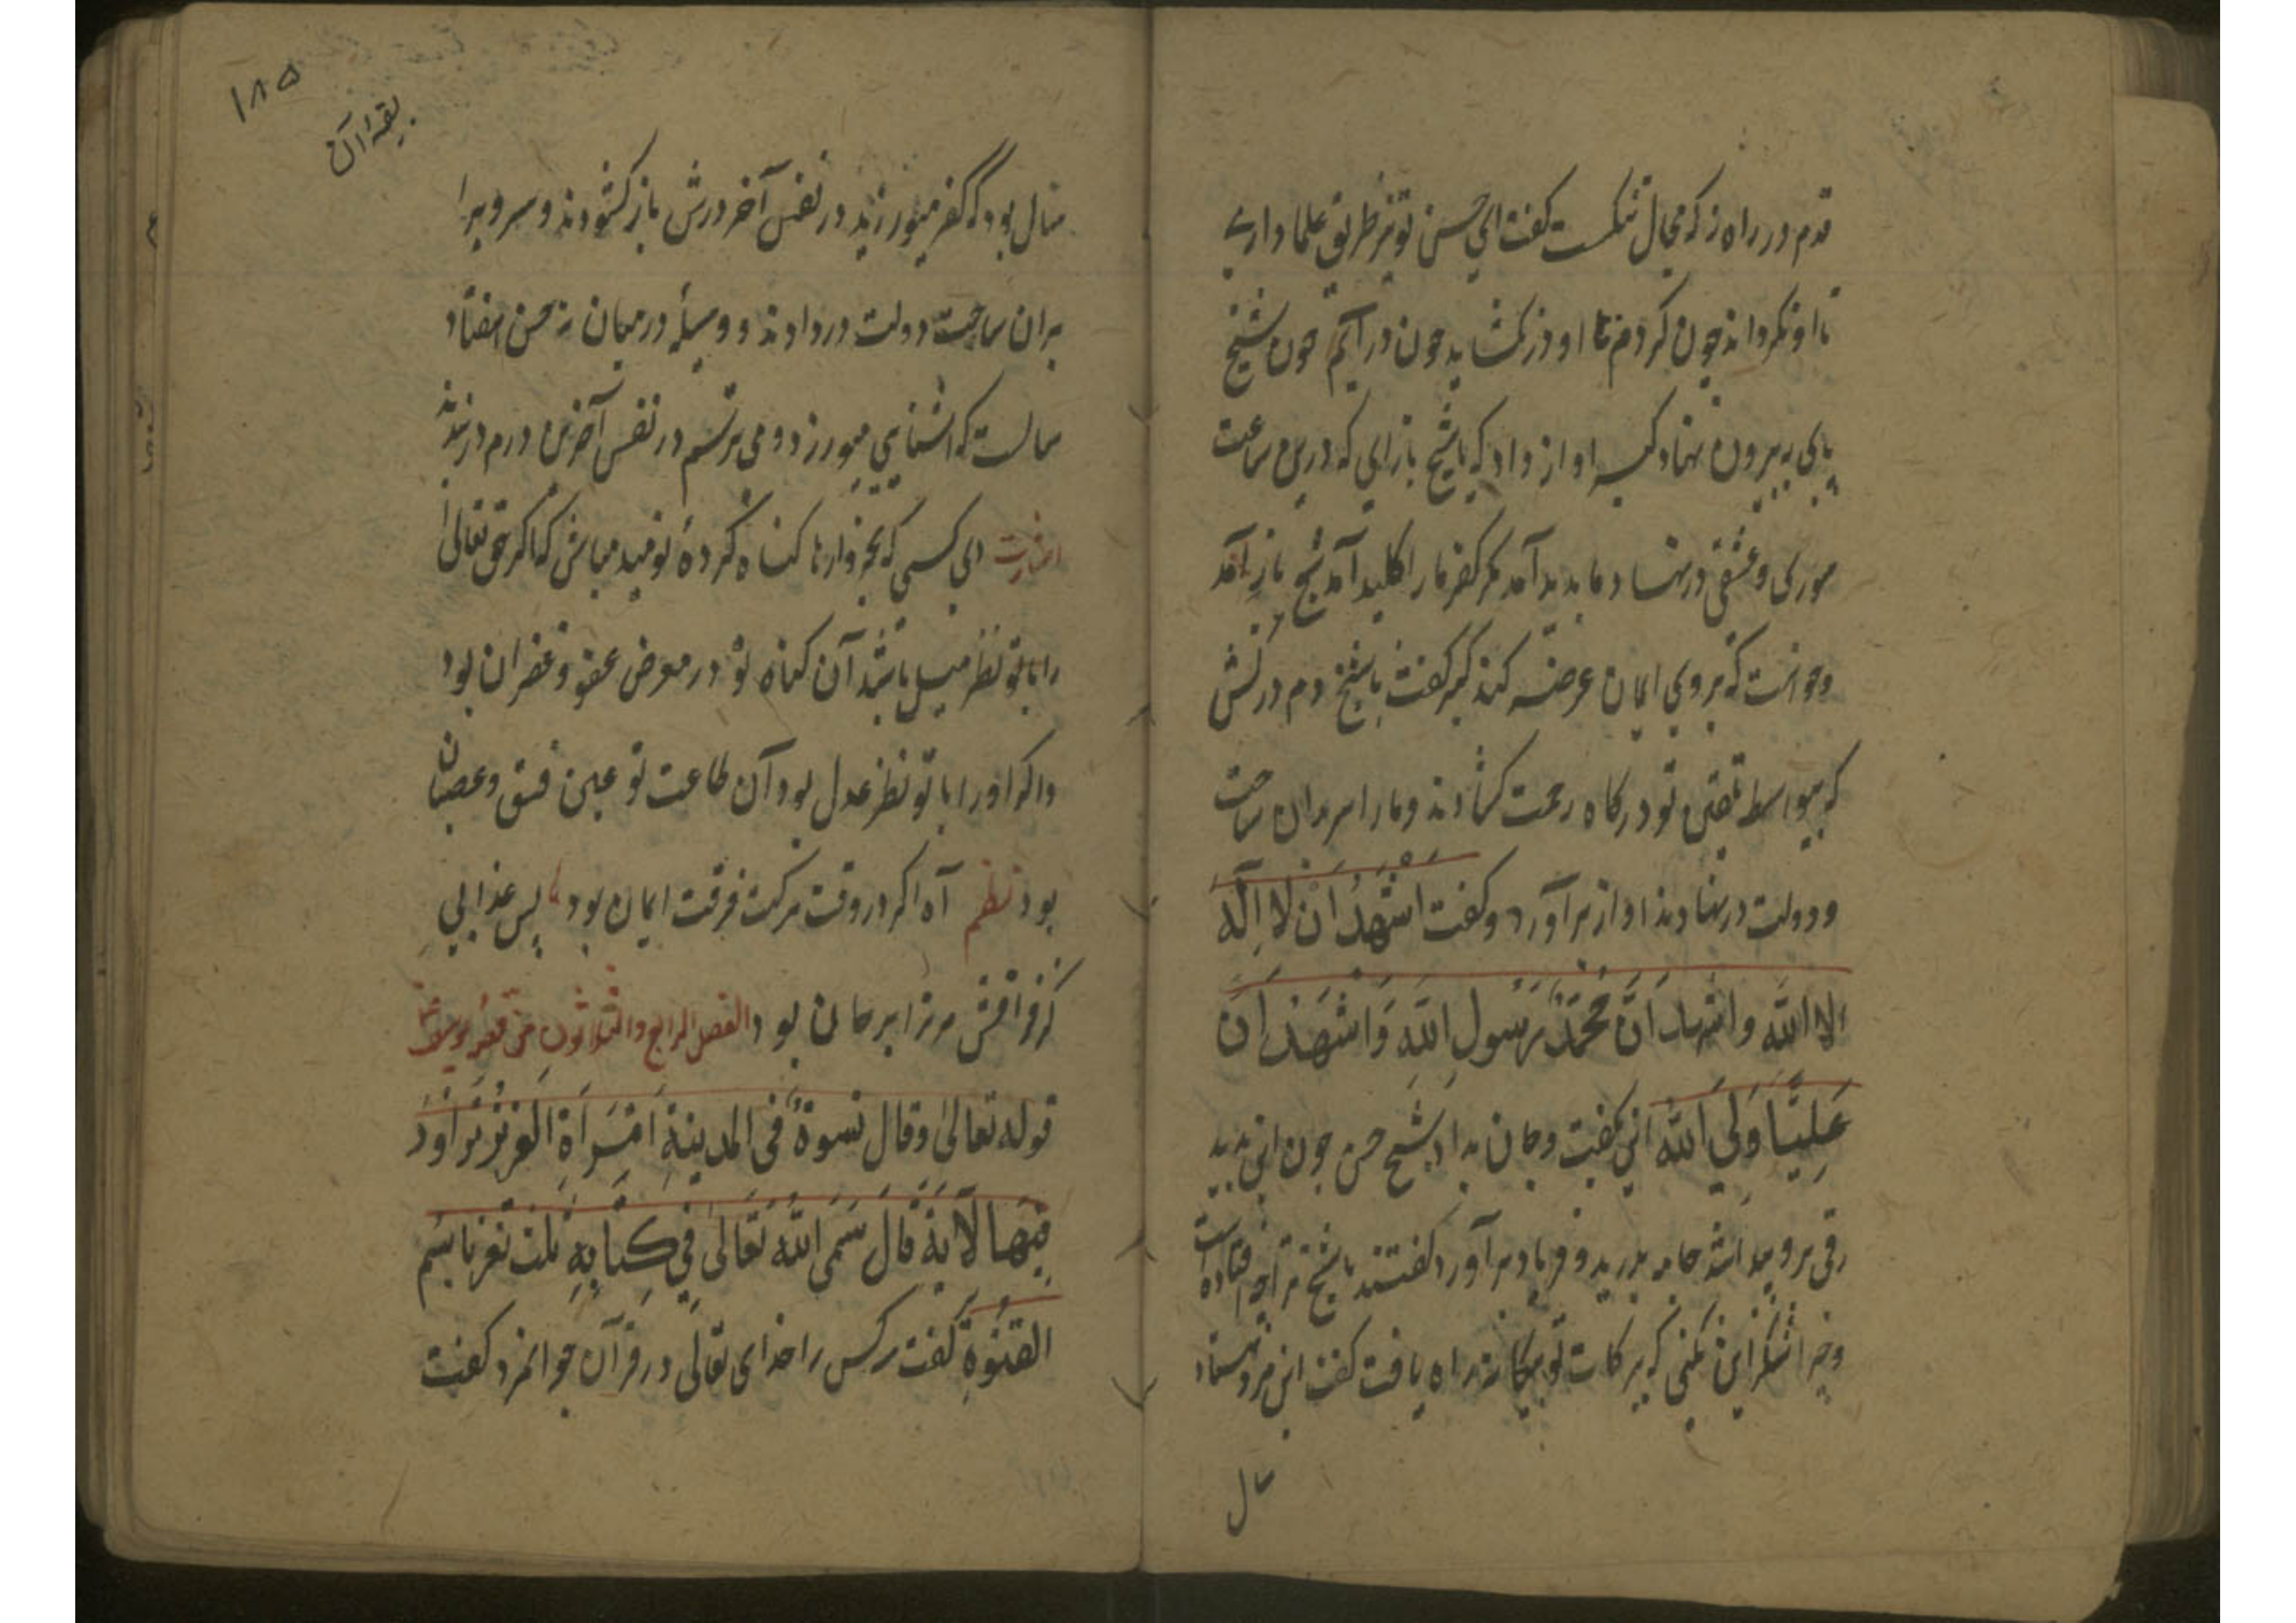 قدم در راه زن که مجال تنکست کفت ای حسن تو نیز طریق علما داری
تا او نکرداند چون کردم تا او در نکشاید چون در آیم چون شیخ
پای بیرون نهاد کبر اواز داد که یا شیخ بازای که درین ساعت
سوزی و عشقی در نهاد ما پدید آمد مکر کفر ما را کلید آمد شیخ باز آمد
وخواست که بر وی ایمان عرضه کند کبر کفت یا شیخ دم درکش
که بیواسطه تلقین تو درکاه رحمت کشادند و ما را بر بران ساحت
ودولت در نهادند اواز برآورد وکفت اشهد ان لا اله
الا الله واشهد ان محمد رسول الله واشهد ان
علیا ولی الله این بکفت وجان بداد شیخ حسن چون این بدید
رقی برو پیدا شد جامه بدرید و فریاد برآورد کفتند یا شیخ ترا چه افتاده است
وچرا شکر این نکنی که ببرکات تو بیکانه راه یافت کفت این مرد هفتاد
سال
۱۸۵
بقیه آن
سال بود که کفر میورزید در نفس آخر درش باز کشودند و سر ویرا
بران ساحت دولت در دادند و وسیله در میان نه حسن هفتاد
سالست که اشنایی میورزد و می ترسم در نفس آخرین درم در بندند
اشارت ای کسی که بخروارها کناه کردۀ نومید مباش که اکر حق تعالی
را با تو نظر میل باشد آن کناه تو در معرض عفو و غفران بود
واکر او را با تو نظر عدل بود آن طاعت تو عین فسق وعصیان
بود نظم آه اکر در وقت مرکت فرقت ایمان بود پس عذابی
کز فراقش مر ترا بر جان بود الفصل الرابع والثلاثون من قصه یوسف
قوله تعالی وقال نسوة فی المدینة امرأة العزیز تراود
فتیها الآیة قال سمی الله تعالی فی کتابه ثلث نفر باسم
الفتوة کفت سه کس را خدای تعالی در قرآن جوانمرد کفت